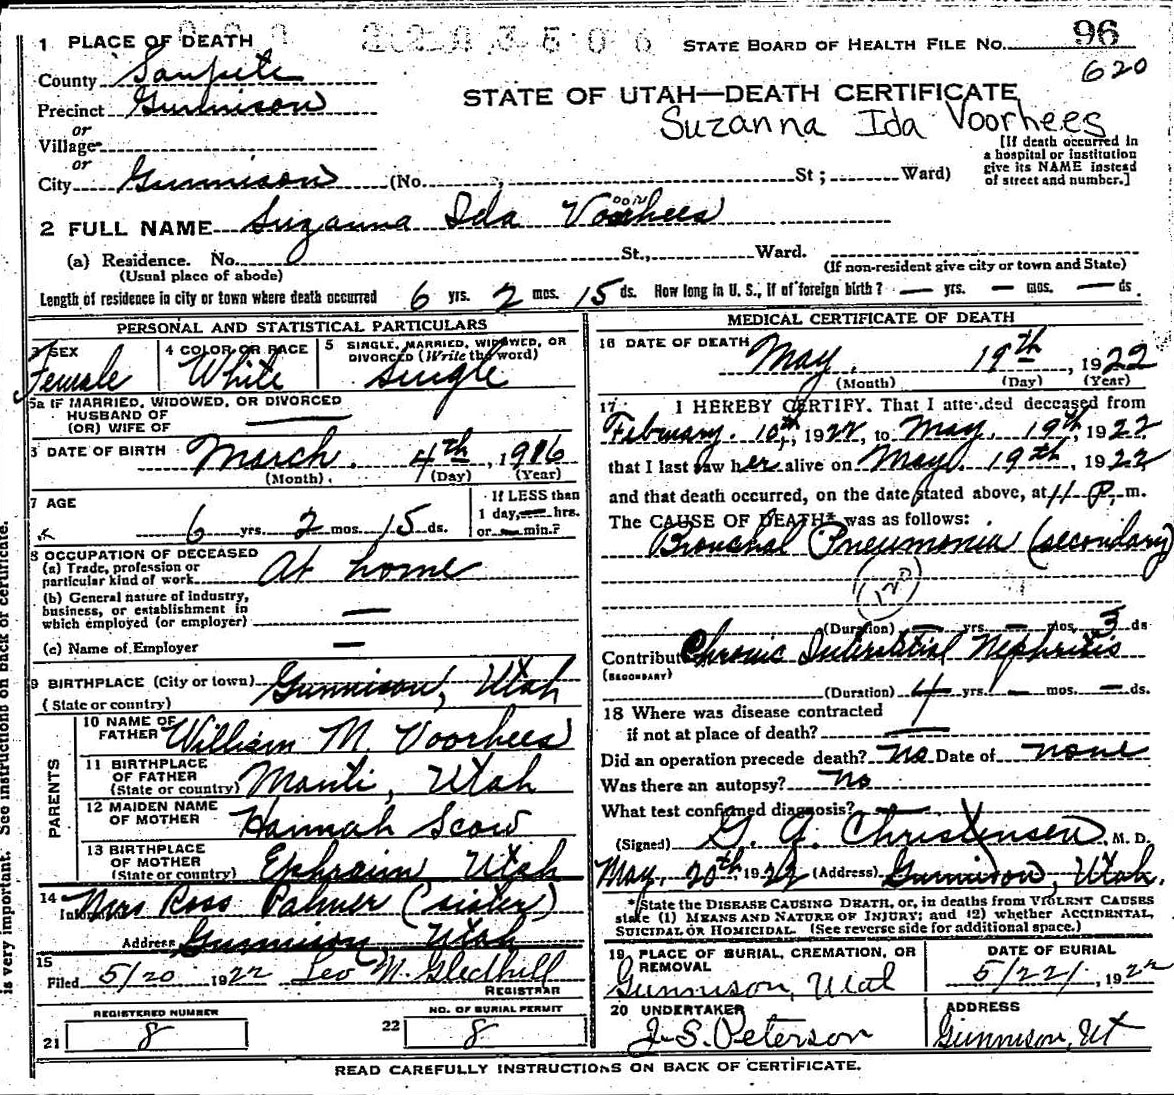 1 PLACE OF DEATH
STATE BOARD OF HEALTH FILE NO. 96
620
County Sanpete
Precinct Gunnison
STATE OF UTAH—DEATH CERTIFICATE
Suzanna Ida Voorhees
or
Village
or
City Gunnison (No. , St ; Ward)
[If death occurred in
a hospital or institution
give its NAME instead
of street and number.]
2 FULL NAME Suzanna Ida Voorhees
(a) Residence. No. St., Ward.
(Usual place of abode)
(If non-resident give city or town and State)
Length of residence in city or town where death occurred 6 yrs. 2 mos. 15 ds. How long in U. S., if of foreign birth? — yrs. — mos. — ds.
PERSONAL AND STATISTICAL PARTICULARS
3 SEX
Female
4 COLOR OR RACE
White
5 SINGLE, MARRIED, WIDOWED, OR
DIVORCED (Write the word)
Single
5a IF MARRIED, WIDOWED, OR DIVORCED
HUSBAND OF
(OR) WIFE OF —
DATE OF BIRTH March 4th, 1916
(Month) (Day) (Year)
7 AGE
6 yrs. 2 mos. 15 ds.
If LESS than
1 day,— hrs.
or — min.?
8 OCCUPATION OF DECEASED
(a) Trade, profession or
particular kind of work At home
(b) General nature of industry,
business, or establishment in
which employed (or employer) —
(c) Name of Employer —
9 BIRTHPLACE (City or town) Gunnison, Utah
(State or country)
PARENTS
10 NAME OF
FATHER William M. Voorhees
11 BIRTHPLACE
OF FATHER
(State or country) Manti, Utah
12 MAIDEN NAME
OF MOTHER Hannah Scow
13 BIRTHPLACE
OF MOTHER
(State or country) Ephraim Utah
14
Informant Mrs Ross Palmer (sister)
Address Gunnison, Utah
15
Filed 5/20 1922 Leo M. Gledhill
REGISTRAR
REGISTERED NUMBER
21 8
NO. OF BURIAL PERMIT
22 8
MEDICAL CERTIFICATE OF DEATH
16 DATE OF DEATH May 19th, 1922
(Month) (Day) (Year)
17 I HEREBY CERTIFY. That I attended deceased from
February. 10th, 1922, to May. 19th, 1922
that I last saw her alive on May. 19th, 1922
and that death occurred, on the date stated above, at 11 P. m.
The CAUSE OF DEATH* was as follows:
Bronchal Pneumonia (secondary)
(Duration) — yrs. — mos. 3 ds
Contributory Chronic Interstitial Nephritis
(SECONDARY)
(Duration) 4 yrs. — mos. — ds.
18 Where was disease contracted
if not at place of death? —
Did an operation precede death? No Date of none
Was there an autopsy? No
What test confirmed diagnosis? —
(Signed) G. A. Christensen, M. D.
May. 20th, 1922 (Address) Gunnison, Utah.
*State the DISEASE CAUSING DEATH, or, in deaths from VIOLENT CAUSES
state (1) MEANS AND NATURE OF INJURY; and (2) whether ACCIDENTAL,
SUICIDAL OR HOMICIDAL. (See reverse side for additional space.)
19 PLACE OF BURIAL, CREMATION, OR
REMOVAL
Gunnison, Utah
DATE OF BURIAL
5/22/, 1922
20 UNDERTAKER
J. S. Peterson
ADDRESS
Gunnison, Ut
READ CAREFULLY INSTRUCTIONS ON BACK OF CERTIFICATE.
is very important. See instructions on back of certificate.